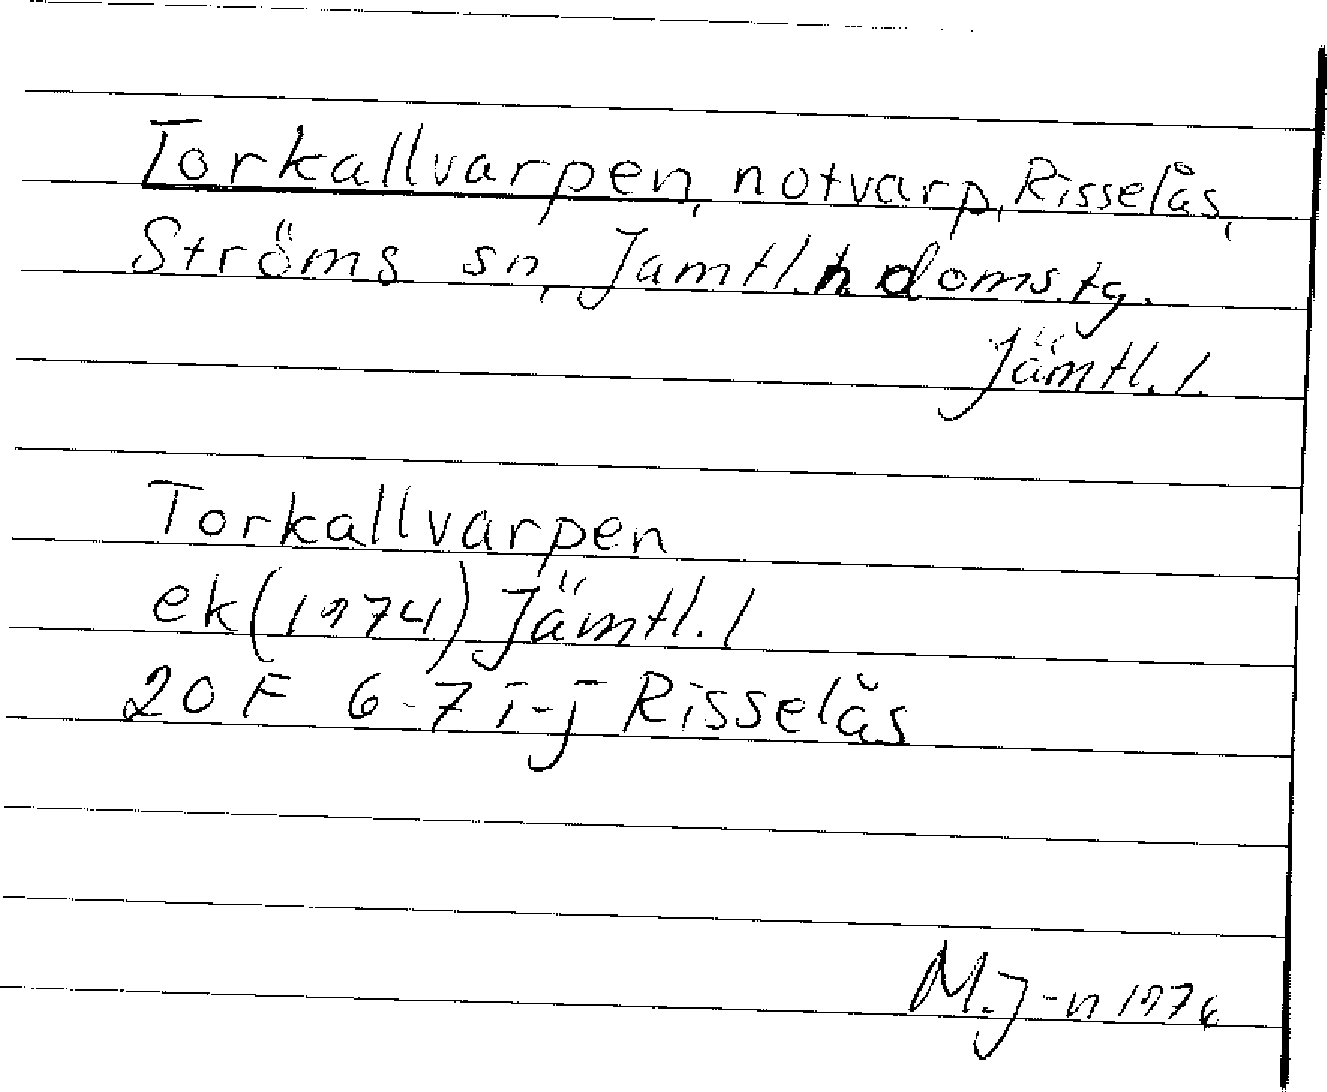 Torkallvarpen, notvarp, Risselås,
Ströms sn, Jämtl. n. doms. tg.
Jämtl. l.
Torkallvarpen
ek (1974) Jämtl. l
20 F 6-7 i-j Risselås
M. J-n 1976